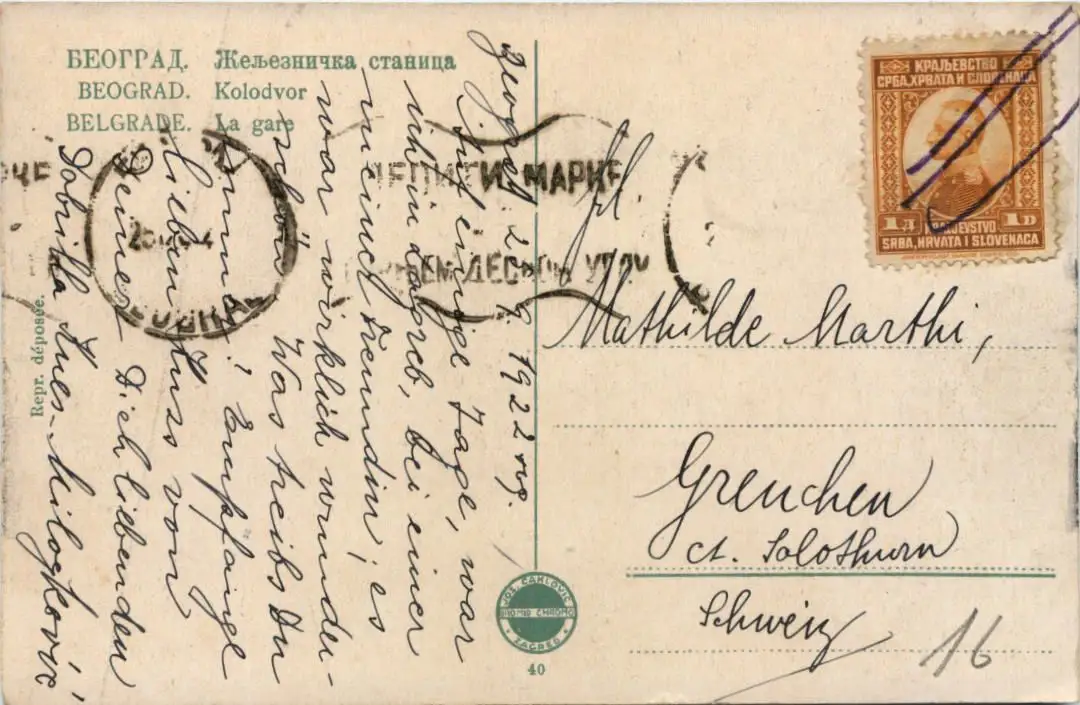 БЕОГРАД. Жељезничка станица
BEOGRAD. Kolodvor
BELGRADE. La gare
Beograd 23. 9. 1922
Seit einige Tage, war
ich in Zagreb, bei einer
meiner Freundin, es
war wirklich wunder-
schön. Was treibs Du
immer? Empfange
lieben Kuss von
Deiner Dich liebenden
Dobrila Milošković
Repr. déposée.
ЛЕПИТИ МАРКЕ
ДЕСНОМ УГЛУ
КРАЉЕВСТВО
СРБА, ХРВАТА И СЛОВЕНАЦА
1 Д
1 D
KRALJEVSTVO
SRBA, HRVATA I SLOVENACA
Frl.
Mathilde Marthi,
Grenchen
ct. Solothurn
Schweiz
16
JOS. ČAKLOVIĆ
BROMO CHROMO
ZAGREB
40